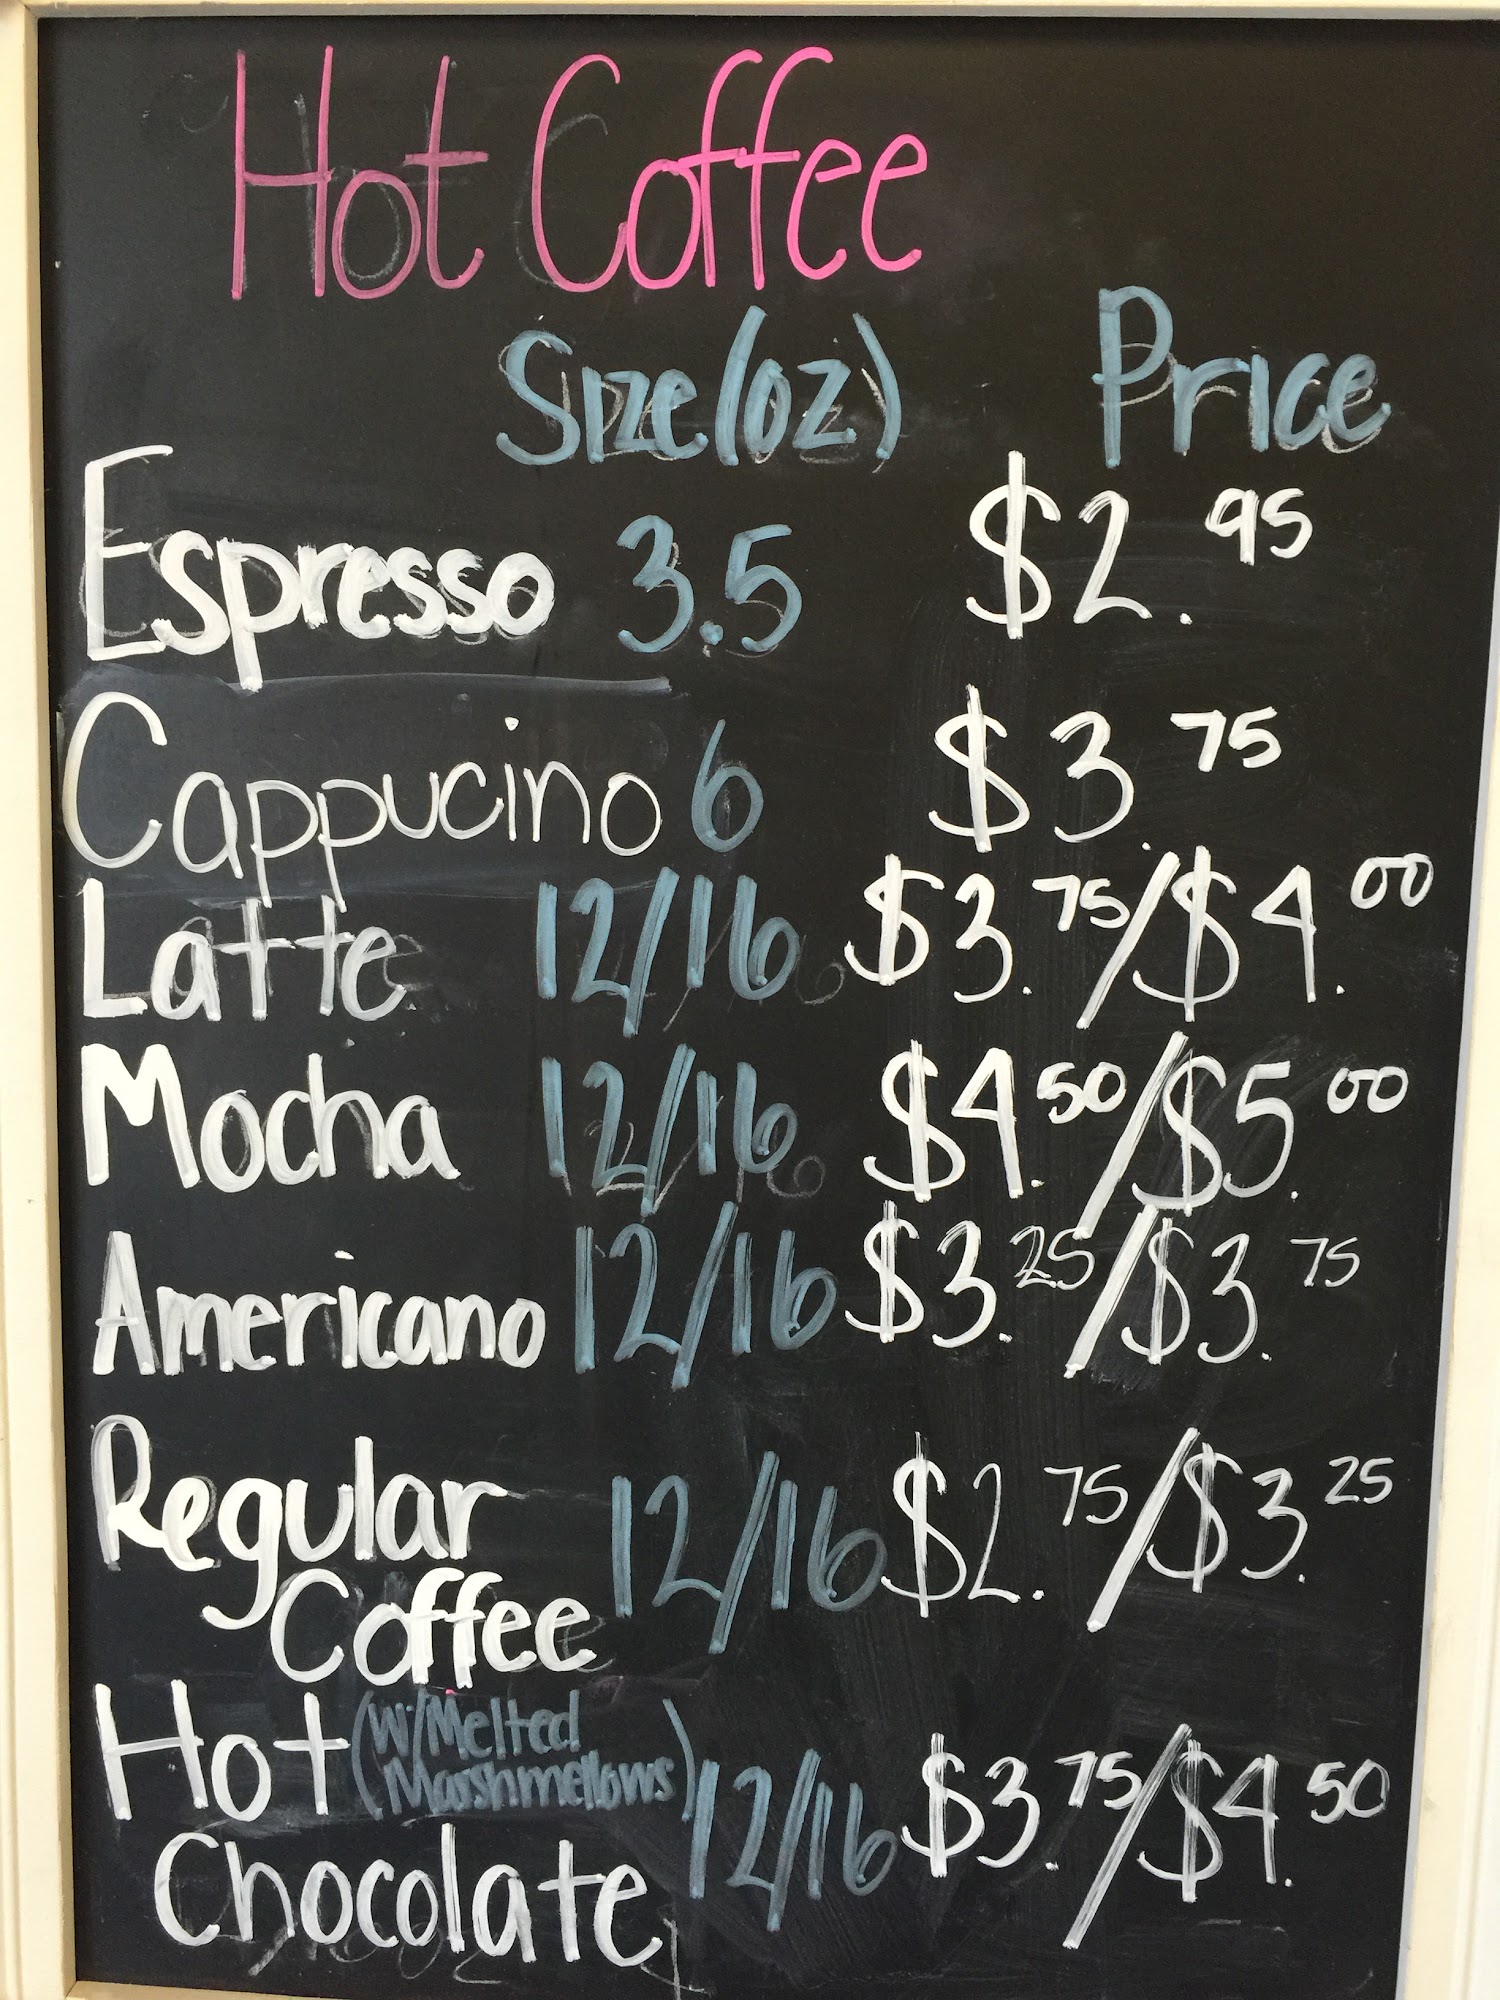 Hot Coffee
Size(oz) Price
Espresso 3.5 $2.95
Cappucino 6 $3.75
Latte 12/16 $3.75/$4.00
Mocha 12/16 $4.50/$5.00
Americano 12/16 $3.25/$3.75
Regular 12/16 $2.75/$3.25
Coffee
Hot (w/Melted
Marshmellows) 12/16 $3.75/$4.50
Chocolate